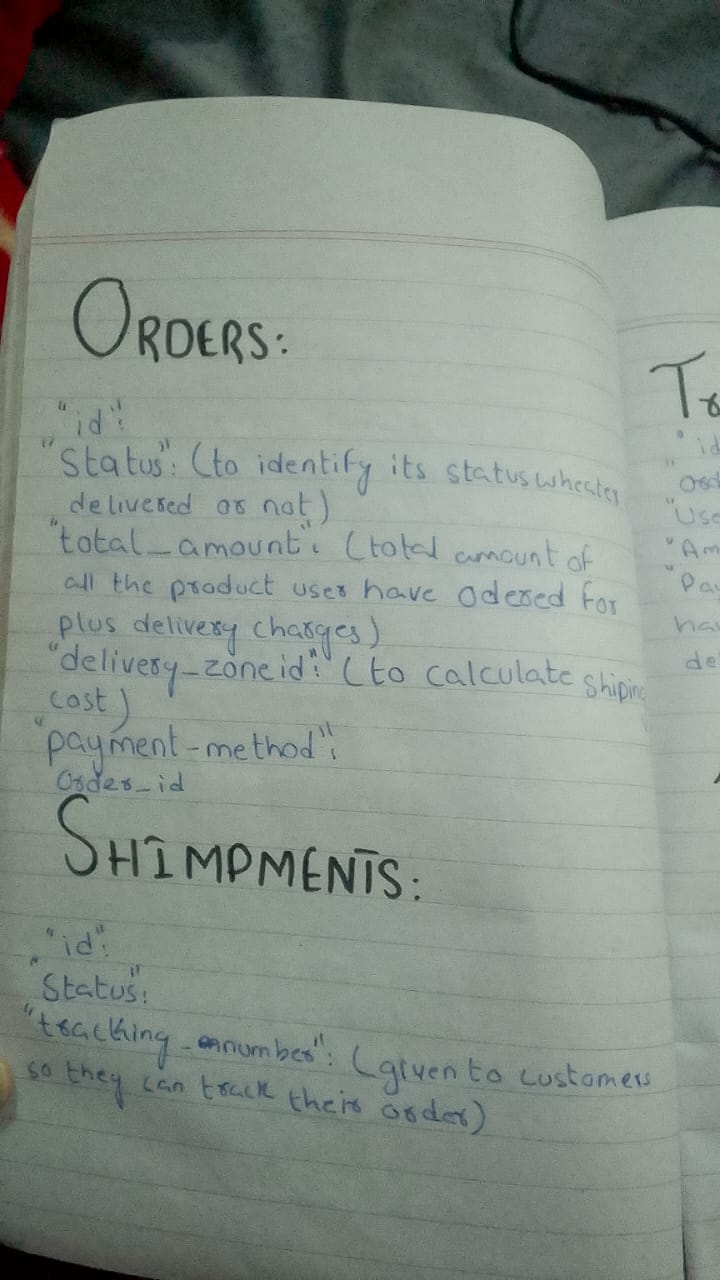 ORDERS:
"id":
"Status": (to identify its status wheater
delivered or not)
"total_amount": (total amount of
all the product user have odered for
plus delivery charges)
"delivery_zoneid": (to calculate shiping
cost)
"payment-method":
Order_id
SHIMPMENTS:
"id":
"Status":
"tracking_number": (given to customers
so they can track their order)
"id
"Am
"Pay
hav
de